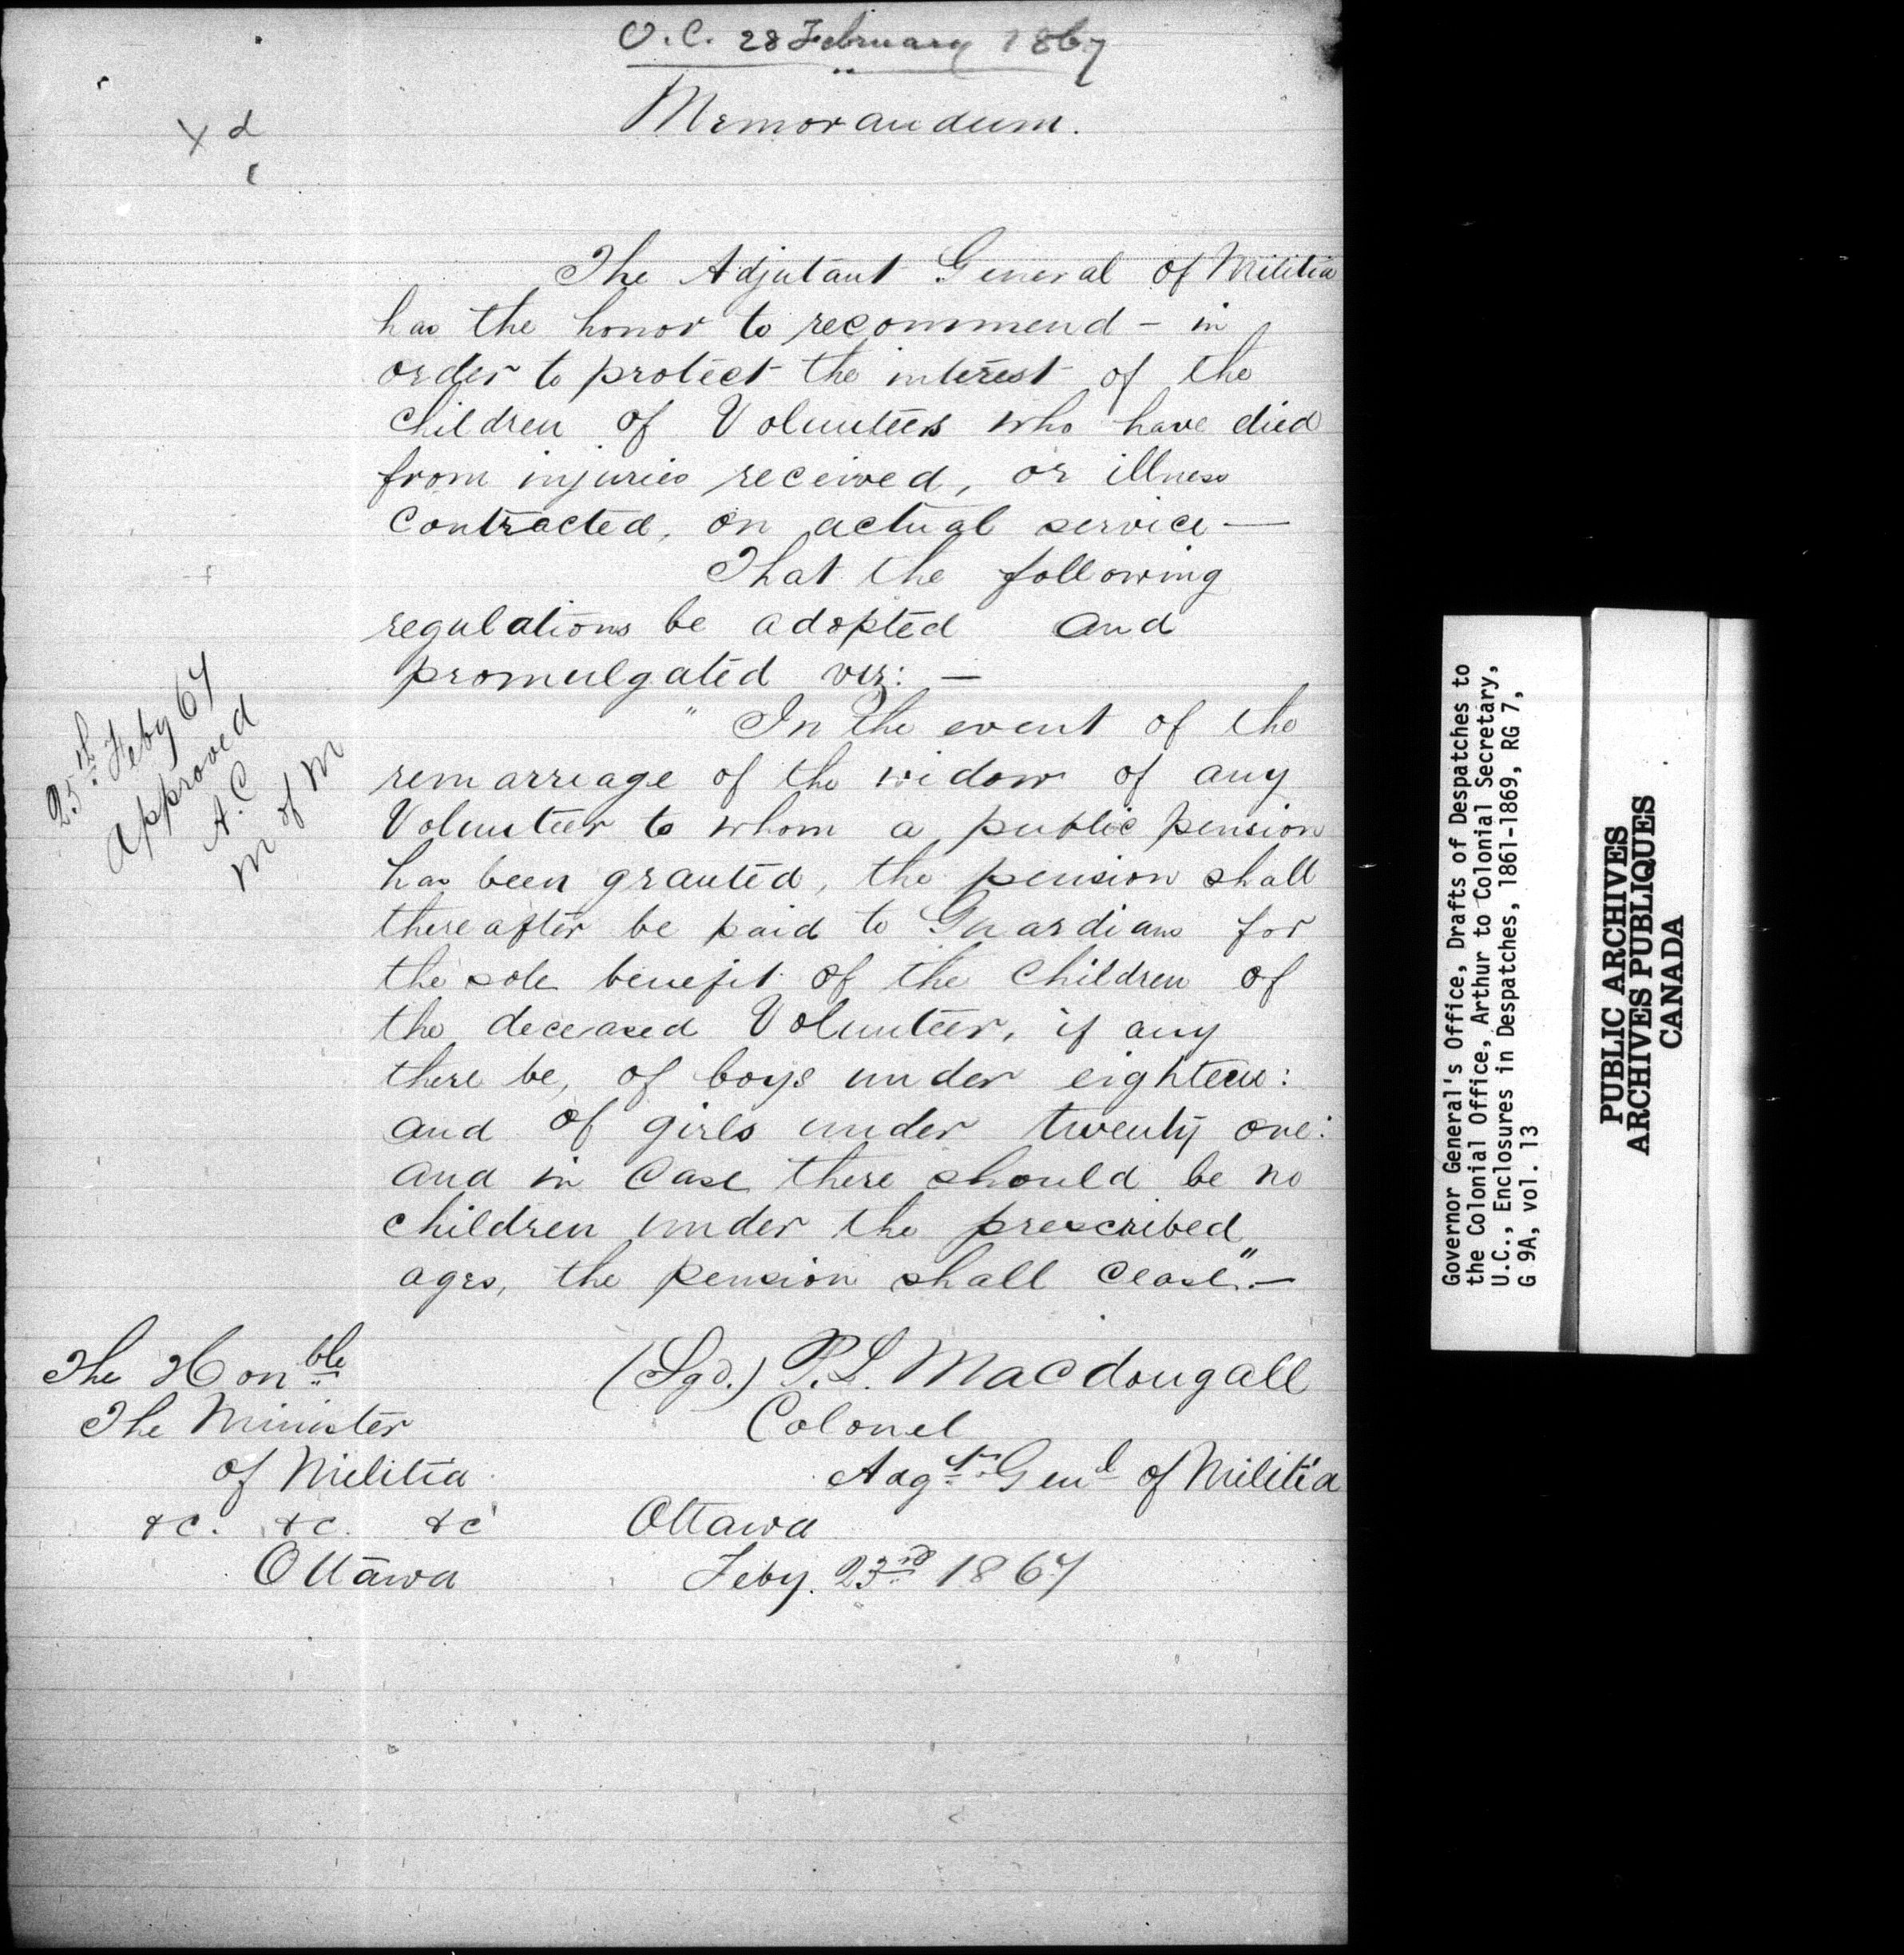 O.C. 28 February 1867
Memorandum.
The Adjutant General of Militia
has the honor to recommend – in
order to protect the interest of the
children of Volunteers who have died
from injuries received, or illness
contracted, on actual service —
That the following
regulations be adopted and
promulgated viz: —
25th Feby 67
Approved
A.C
M of M
" In the event of the
remarriage of the widow of any
Volunteer to whom a public pension
has been granted, the pension shall
thereafter be paid to Guardians for
the sole benefit of the children of
the deceased Volunteer, if any
there be, of boys under eighteen:
and of girls under twenty one:
and in case there should be no
children under the prescribed
ages, the pension shall cease". —
The Honble
The Minister
of Militia
&c. &c. &c
Ottawa
(Sgd.) P.L. MacDougall
Colonel
Adgt. Genl of Militia
Ottawa
Feby. 23rd 1867
Governor General's Office, Drafts of Despatches to
the Colonial Office, Arthur to Colonial Secretary,
U.C., Enclosures in Despatches, 1861-1869, RG 7,
G 9A, vol. 13
PUBLIC ARCHIVES
ARCHIVES PUBLIQUES
CANADA